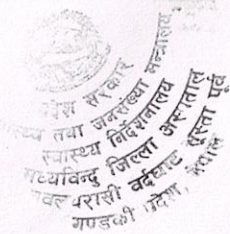 सरकार
तथा जनसंख्या मन्त्रालय
स्वास्थ्य निर्देशनालय
मध्यविन्दु जिल्ला अस्पताल
वर्दघाट सुस्ता पूर्व
गण्डकी प्रदेश, नेपाल